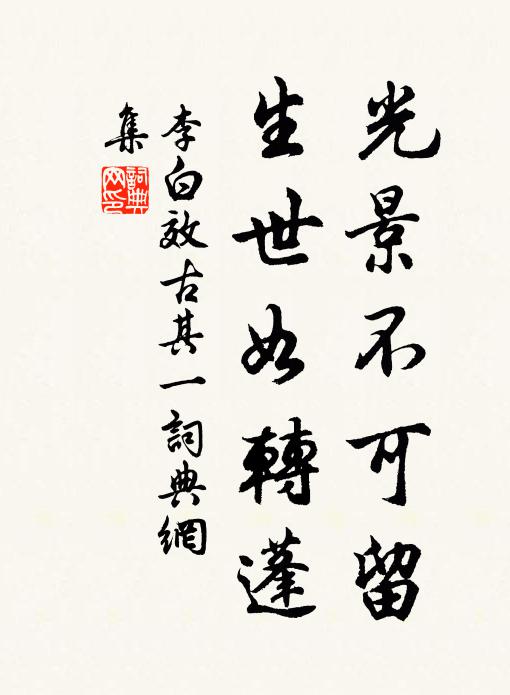 光景不可留
生世如轉蓬
李白效古其一詞典網
集
詞典
网印